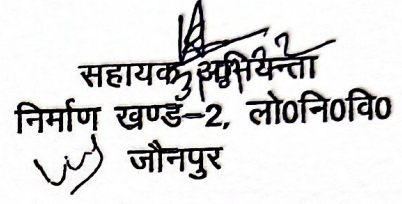 सहायक अभियन्ता
निर्माण खण्ड-2, लो0नि0वि0
जौनपुर